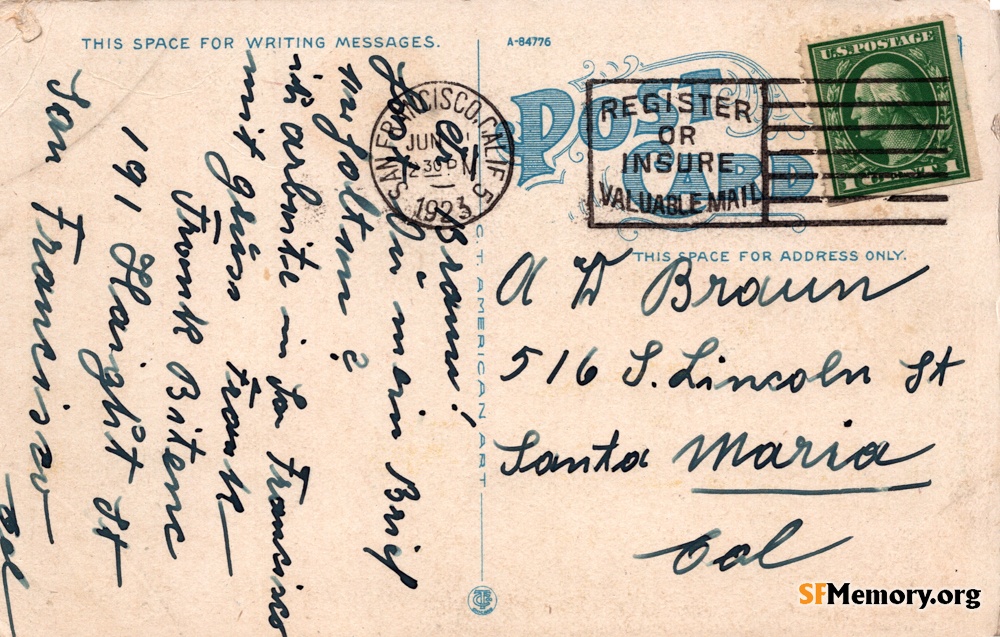 THIS SPACE FOR WRITING MESSAGES.
A-84776
POST CARD
U.S. POSTAGE
1 CENT 1
SAN FRANCISCO, CALIF. 5
JUN
230 PM
1923
REGISTER
OR
INSURE
VALUABLE MAIL
THIS SPACE FOR ADDRESS ONLY.
A W Braun
516 S. Lincoln St
Santa Maria
Cal
Braun!
Hast Du mein Brief
erhalten?
ich arbeite in San Francisco
mit gruss Frank
Frank Bitenc
191 Haight St
San Francisco
Cal
C.T. AMERICAN ART
SFMemory.org